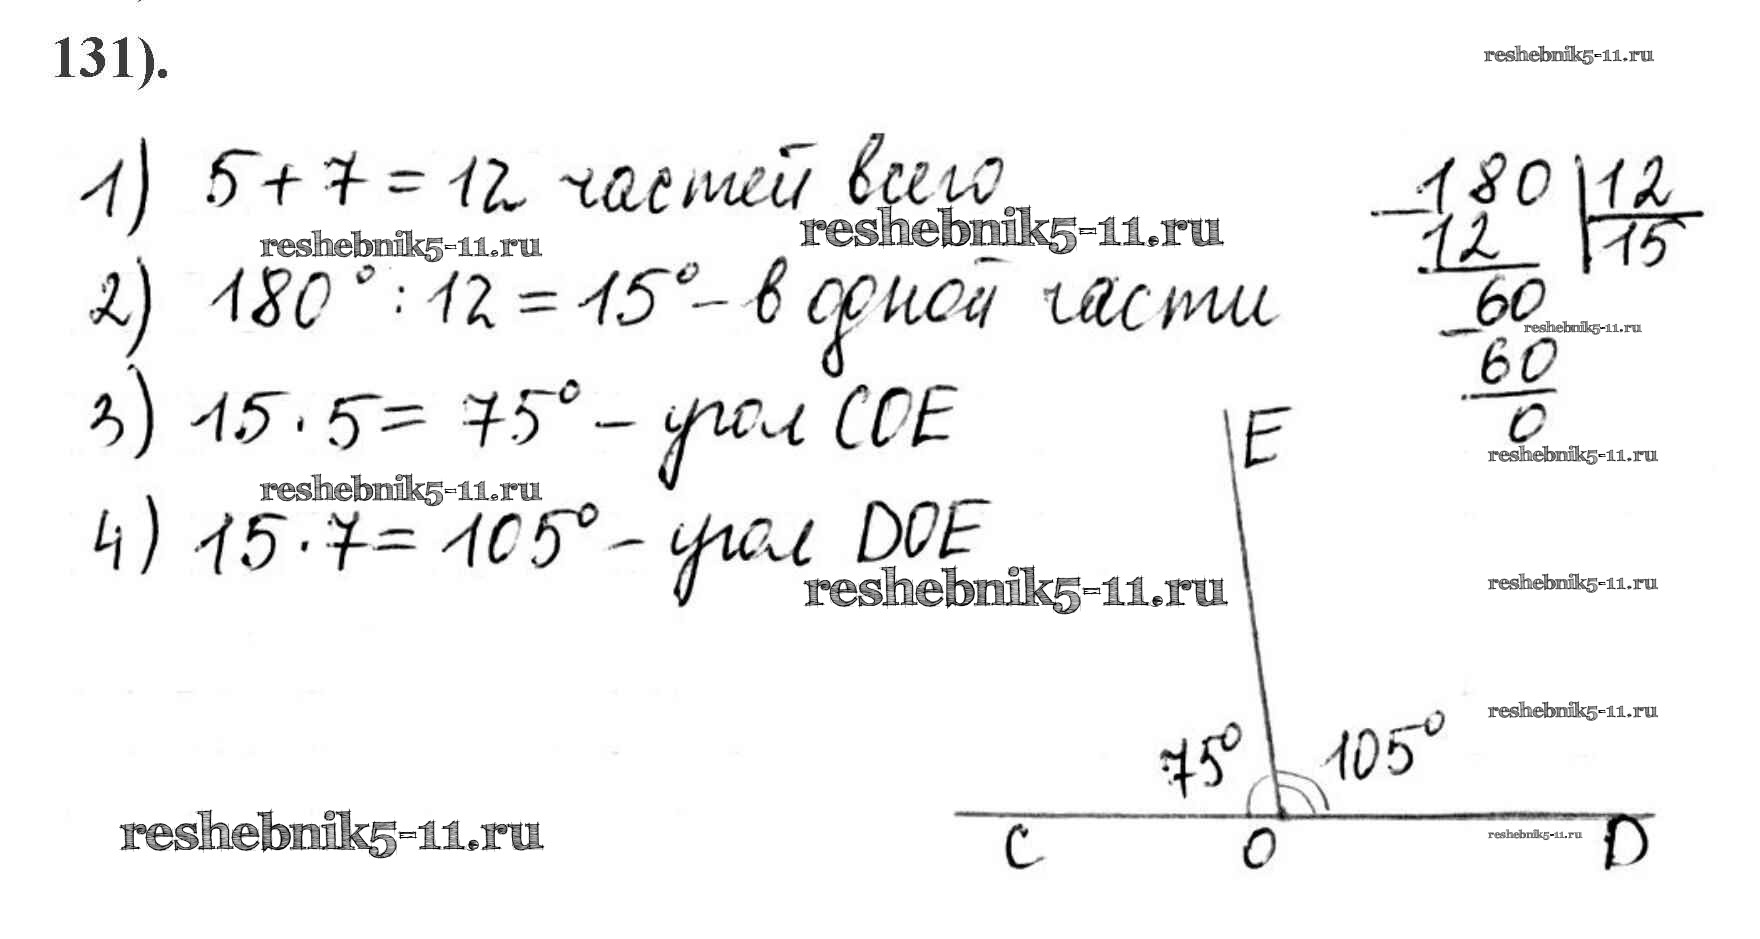 131).
reshebnik5-11.ru
1) 5+7=12 частей всего
reshebnik5-11.ru
reshebnik5-11.ru
2) 180°:12=15°- в одной части
3) 15·5=75°- угол COE
reshebnik5-11.ru
4) 15·7=105°- угол DOE
reshebnik5-11.ru
reshebnik5-11.ru
180 | 12
- 12 15
60
reshebnik5-11.ru
- 60
0
reshebnik5-11.ru
E
reshebnik5-11.ru
reshebnik5-11.ru
75° 105°
reshebnik5-11.ru
C O D